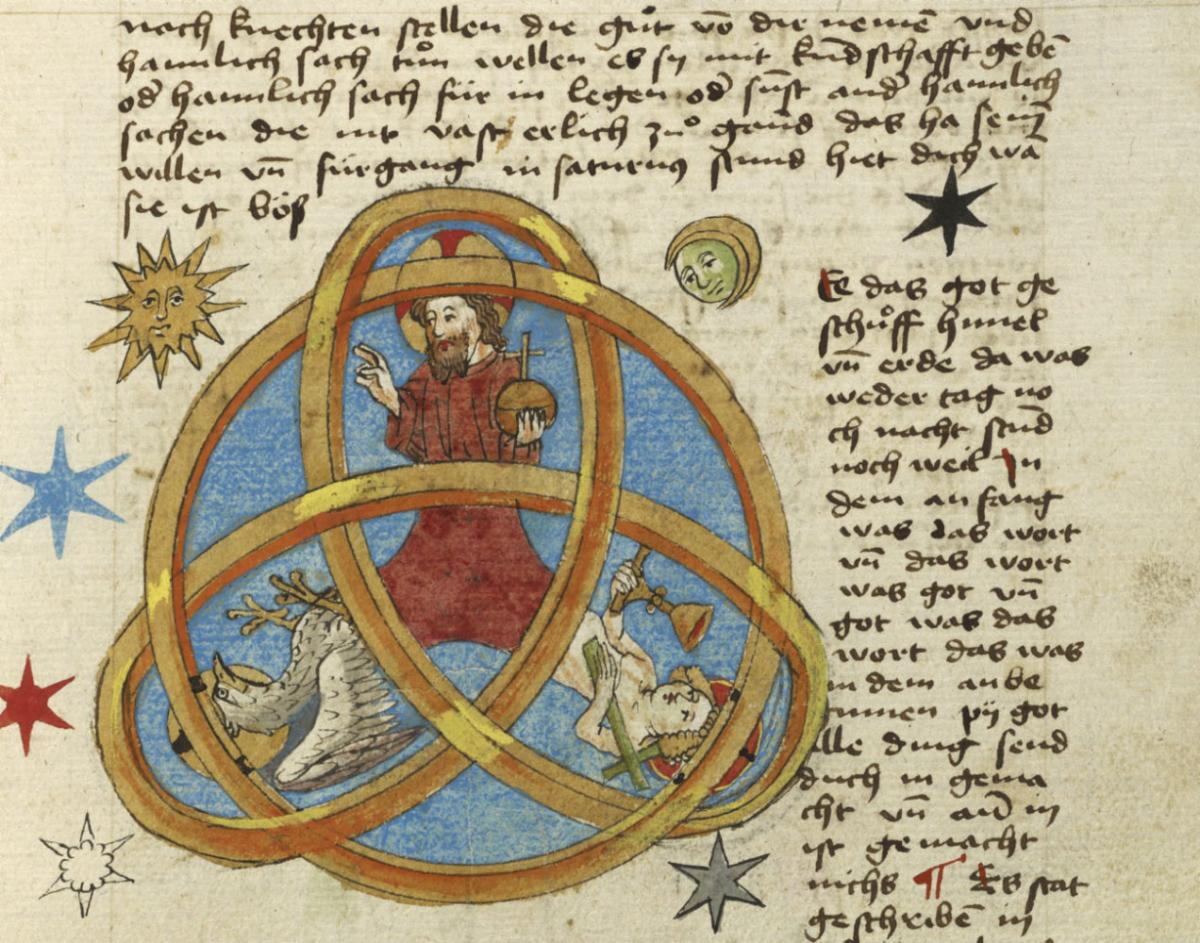 nach knechten stellen die gůt vō dir nemē vnd
hamlich sach tůn wellen es sy mit kūdschafft gebē
od̄ hamlich sach für in legen od̄ sūst and̄ hamlich
sachen die nit vast erlich zů gand das ha sein
willen vn̄ fürgang in saturnꝯ stund hiet dich wā
sie ist bös
Ee das got ge
schůff himel
vn̄ erde da was
weder tag no
ch nacht stūd
noch weil In
dem anfang
was das wort
vn̄ das wort
was got vn̄
got was das
wort das was
in dem anbe
ginnen pÿ got
alle ding send
duch in gema
cht vn̄ an̄ in
ist gemacht
nichs ¶ Es stat
geschribē in